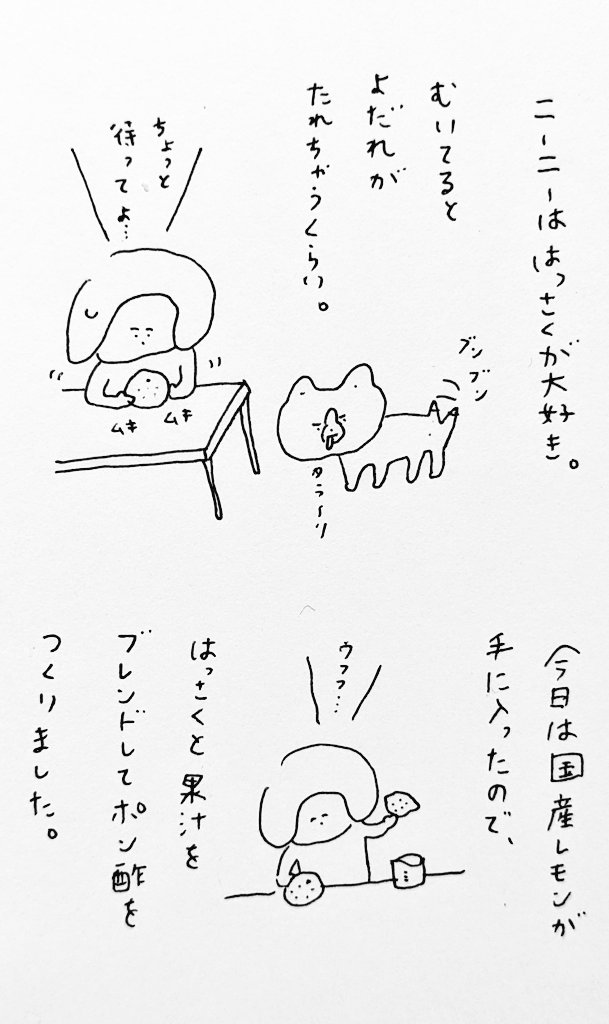 ニーニーははっさくが大好き。
むいてると
よだれが
たれちゃうくらい。
ブンブン
タラ〜リ
ちょっと
待ってよ…
ムキ ムキ
今日は国産レモンが
手に入ったので、
ウフフ…
はっさくと果汁を
ブレンドしてポン酢を
つくりました。